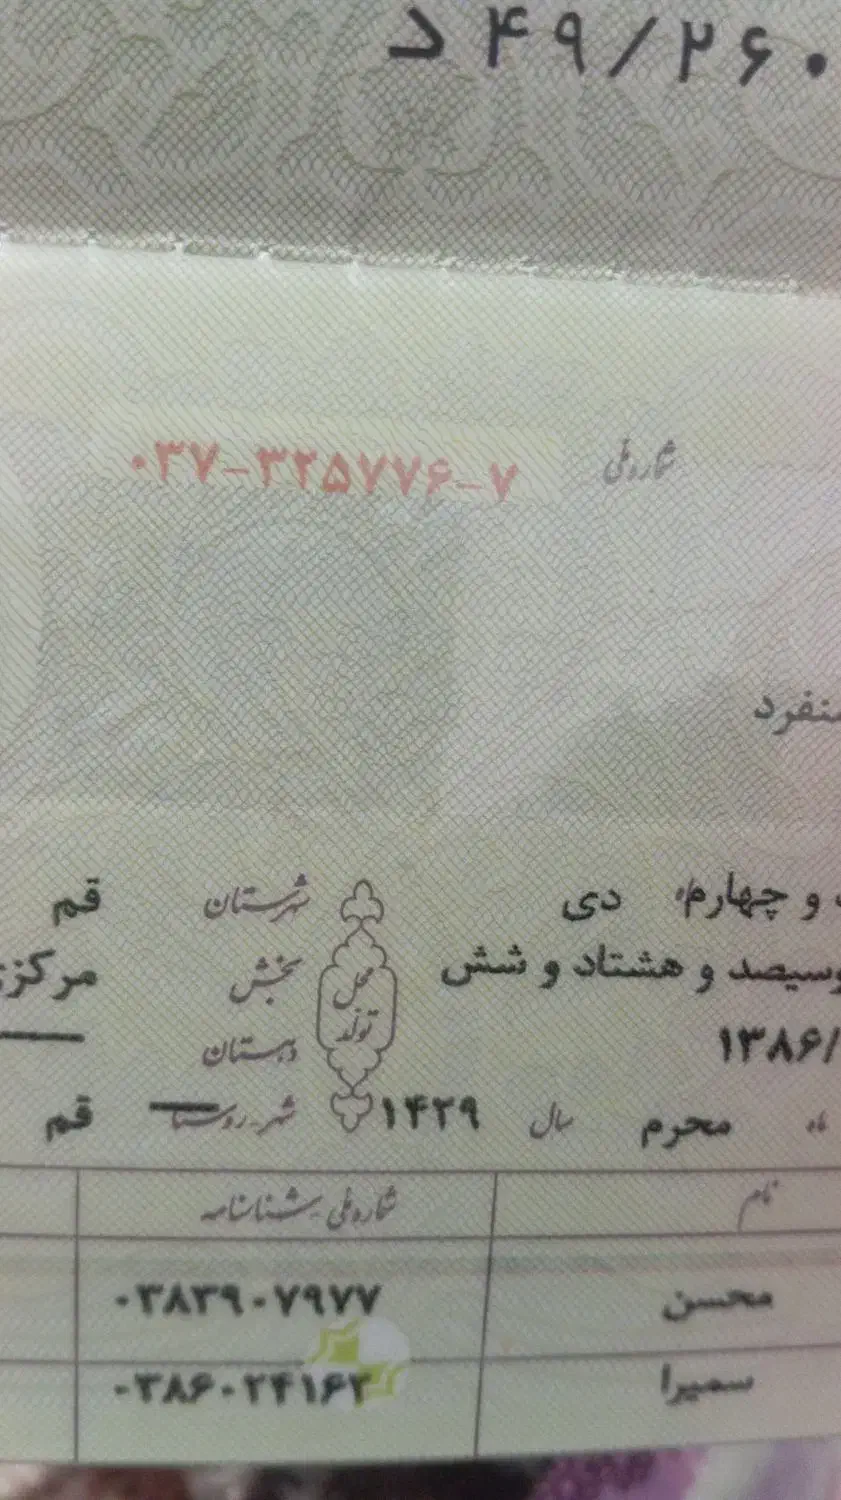 د ۴۹/۲۶۰
شماره ملی ۰۳۷-۳۲۵۷۷۶-۷
منفرد
و چهارم ماه دی شهرستان قم
وسیصد و هشتاد و شش بخش مرکزی
محل تولد
۱۳۸۶/ دهستان
ماه محرم سال ۱۴۲۹ شهر-روستا قم
نام شماره ملی - شناسنامه
محسن ۰۳۸۳۹۰۷۹۷۷
سمیرا ۰۳۸۶۰۲۴۱۶۲